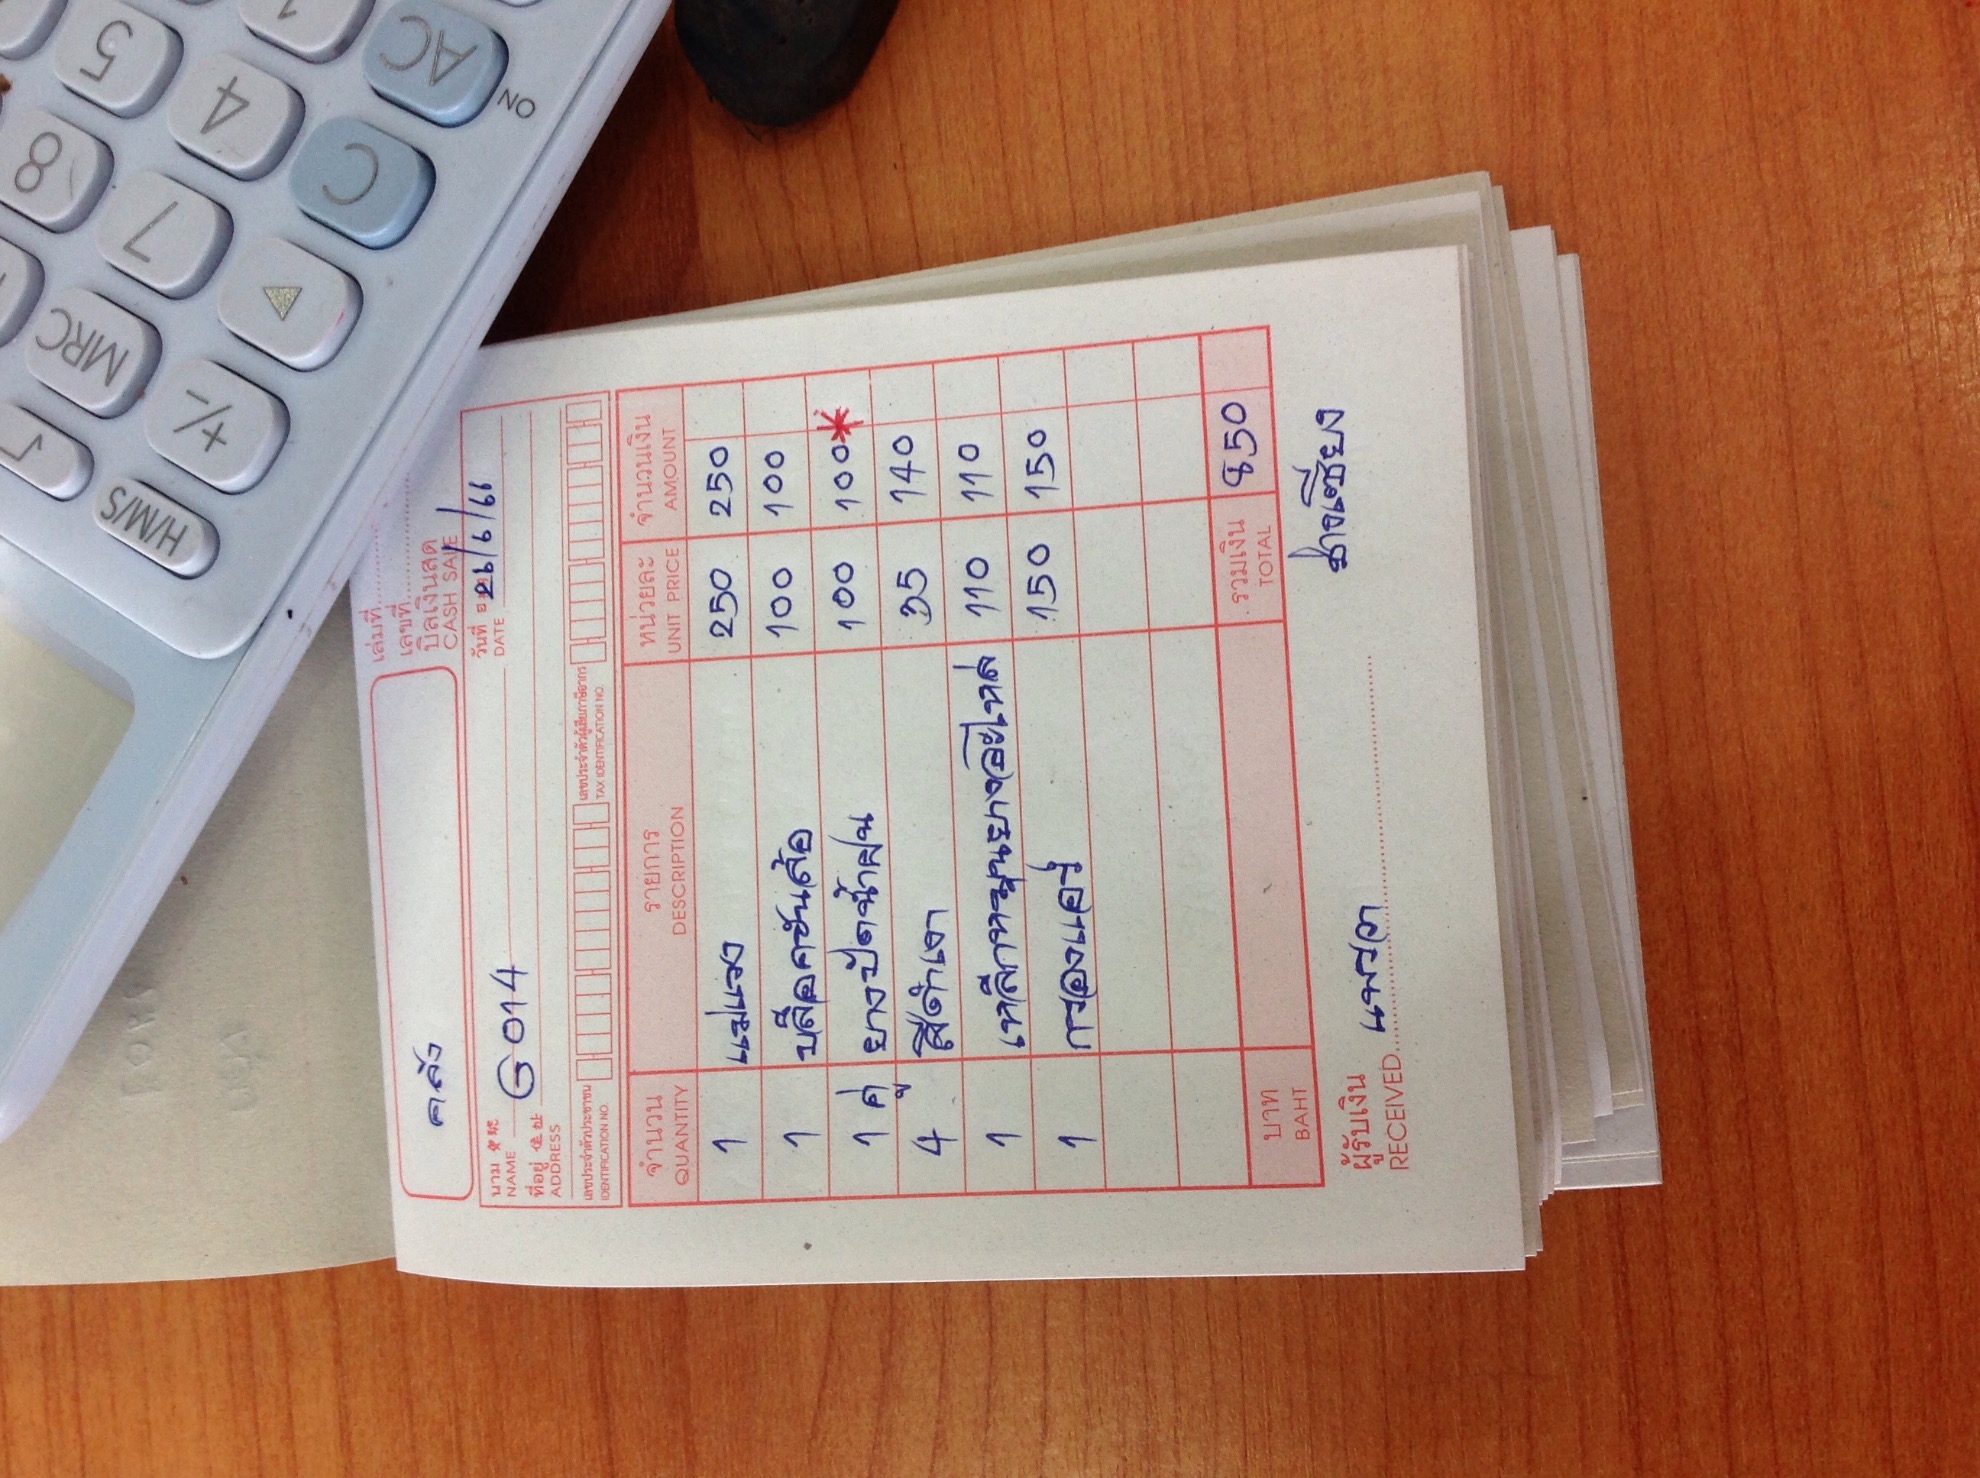 คลัง
เล่มที่
เลขที่
บิลเงินสด
CASH SALE
นาม NAME G014 วันที่ DATE 26/6/66
ที่อยู่ 住址
ADDRESS
เลขประจำตัวประชาชน เลขประจำตัวผู้เสียภาษีอากร
IDENTIFICATION NO. TAX IDENTIFICATION NO.
จำนวน รายการ หน่วยละ จำนวนเงิน
QUANTITY DESCRIPTION UNIT PRICE AMOUNT
1 แม่แรง 250 250
1 บล็อคขันล้อ 100 100
1 คู่ ยางปัดน้ำฝน 100 100*
4 สีดำเงา 35 140
1 เหล็กหมุนยางอะไหล่ 110 110
1 กรองแอร์ 150 150
บาท รวมเงิน 850
BAHT TOTAL
ผู้รับเงิน แพรวา ช่างเชียง
RECEIVED
H/M/S
+/-
√
MRC
▶
7
8
C
4
5
AC
1
ON